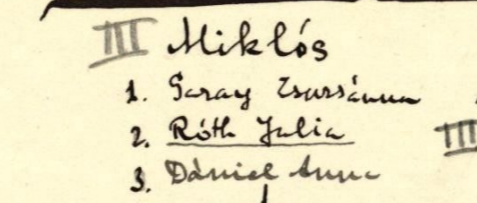 III Miklós
1. Garay Zsuzsánna
2. Róth Julia
III
3. Dániel Anna